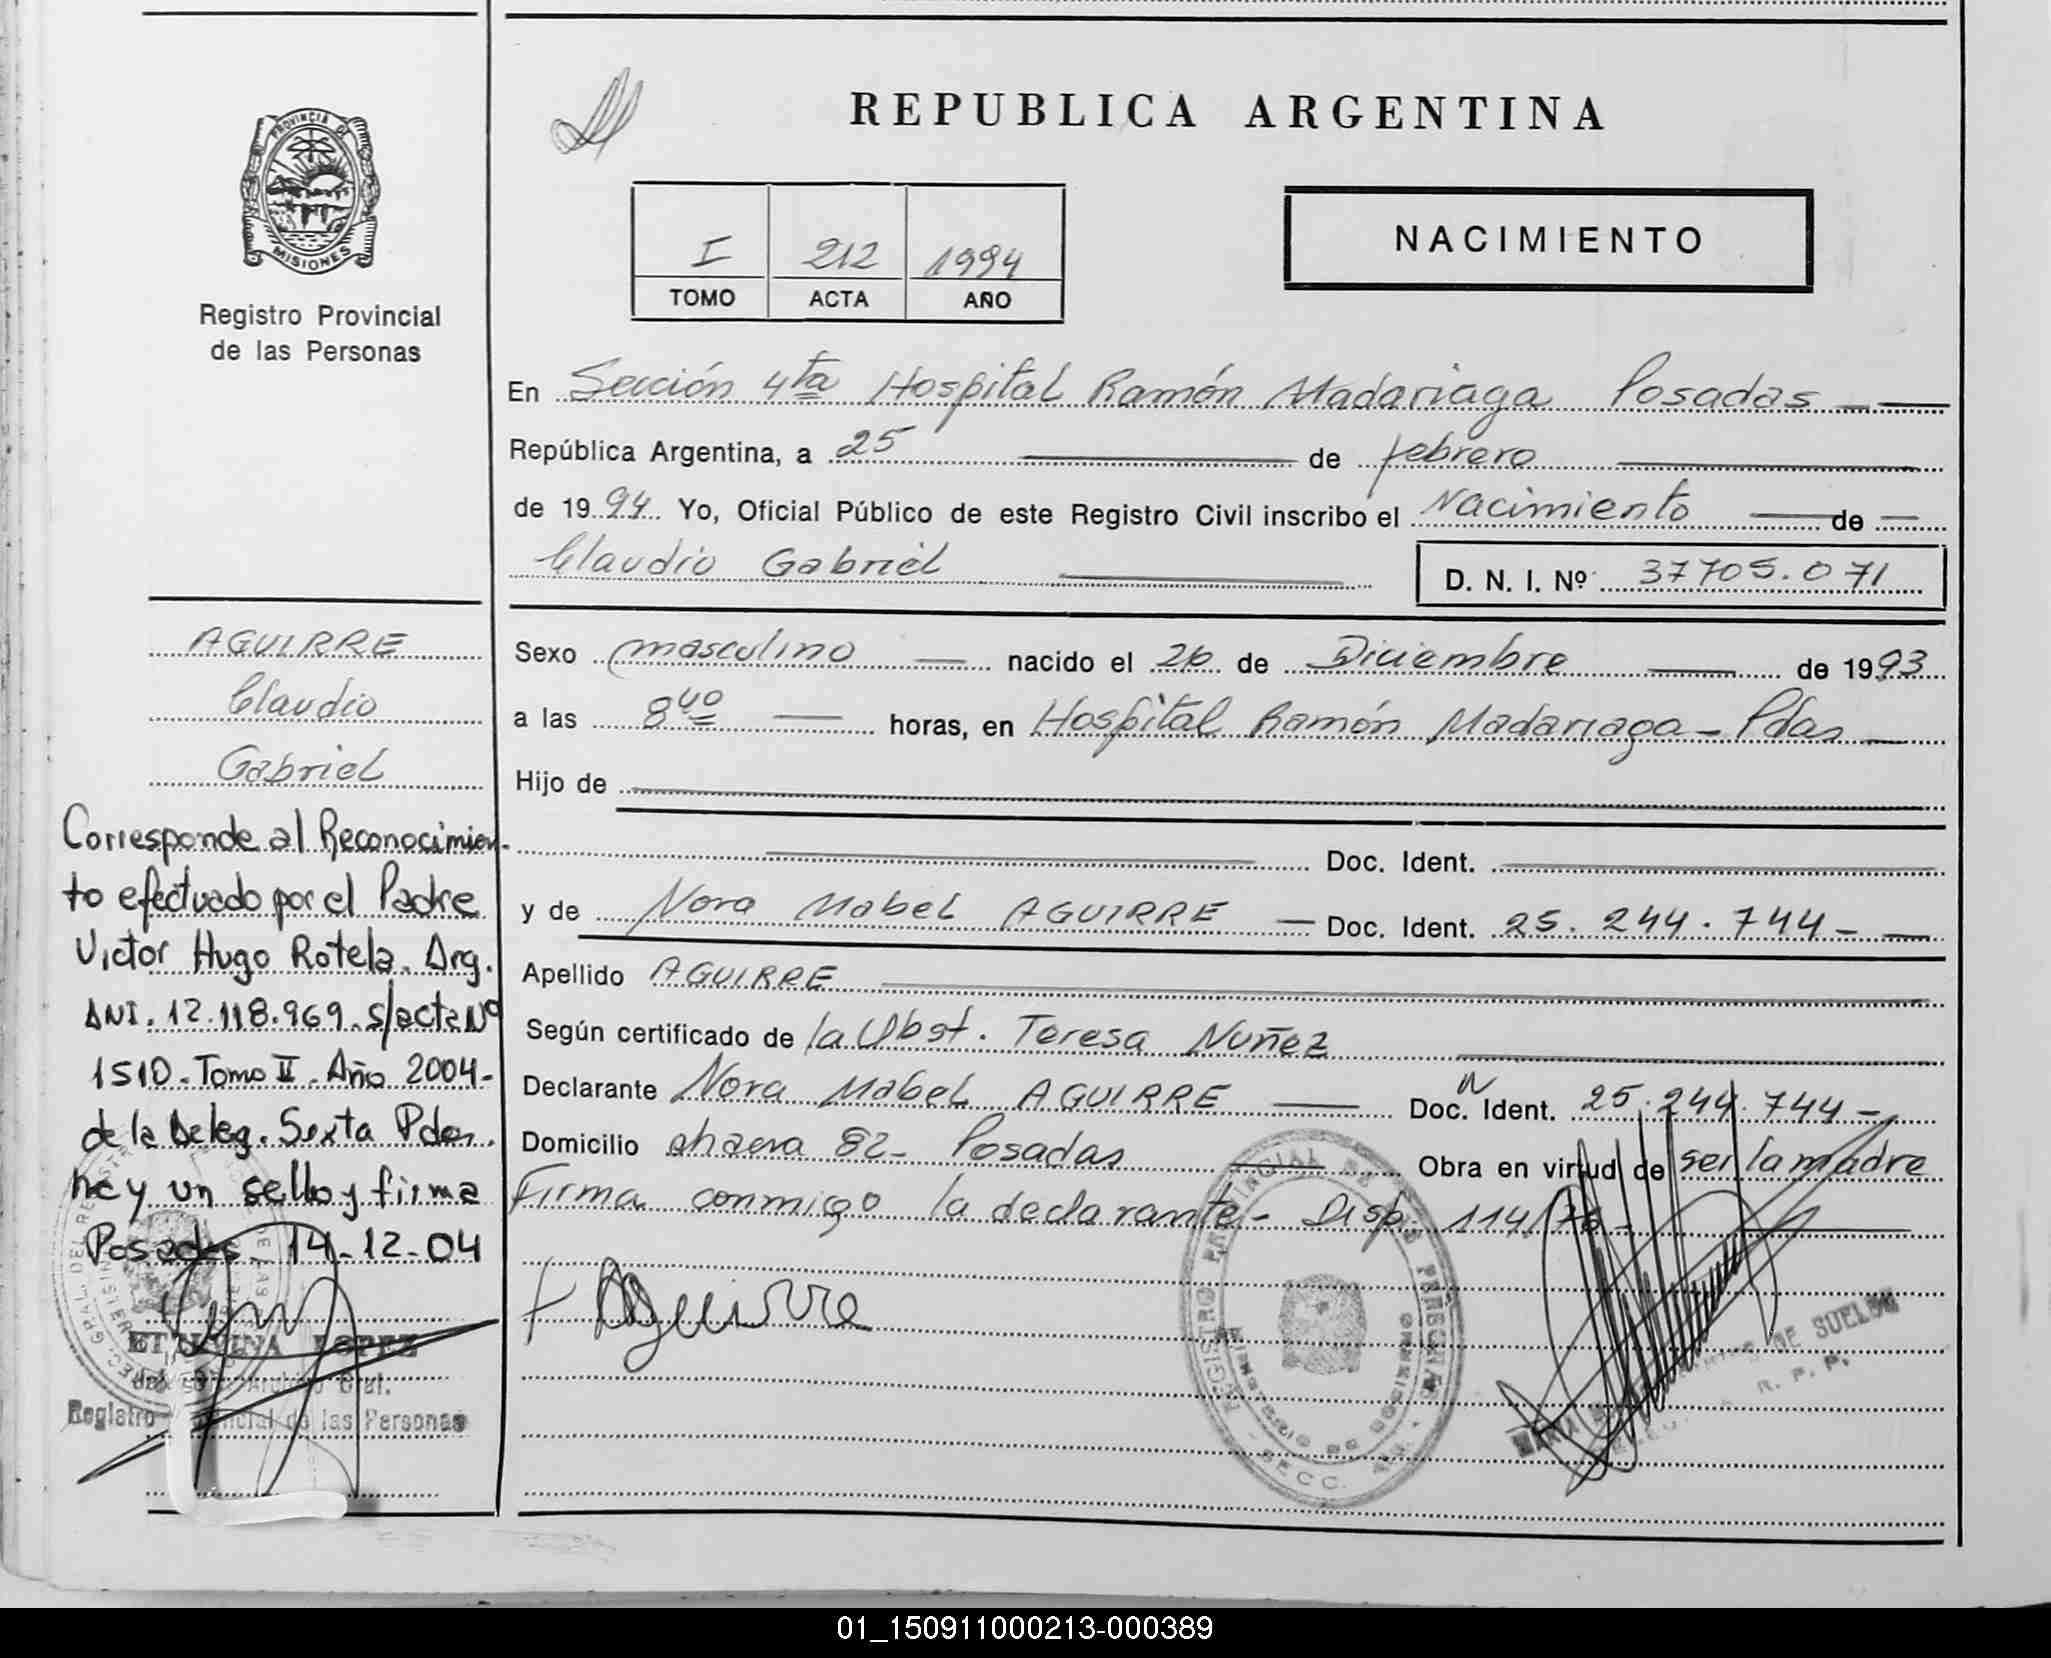 REPUBLICA ARGENTINA
PROVINCIA DE
MISIONES
Registro Provincial
de las Personas
I 212 1994
TOMO ACTA AÑO
NACIMIENTO
En Sección 4ta Hospital Ramón Madariaga Posadas
República Argentina, a 25 de febrero
de 1994 Yo, Oficial Público de este Registro Civil inscribo el Nacimiento de
Claudio Gabriel D. N. I. Nº 37705.071
Sexo masculino nacido el 26 de Diciembre de 1993
a las 8 40 horas, en Hospital Ramón Madariaga - Pdas
Hijo de
Doc. Ident.
y de Nora Mabel AGUIRRE Doc. Ident. 25.244.744 -
Apellido AGUIRRE
Según certificado de la Obst. Teresa Nuñez
Declarante Nora Mabel AGUIRRE Doc. Ident. 25.244.744 -
Domicilio chacra 82 - Posadas Obra en virtud de ser la madre
Firma conmigo la declarante - Disp. 114/76 -
Aguirre
REGISTRO PROVINCIAL DE LAS PERSONAS
MISIONES
SECC. 4ta.
DE SUELDO
R. P. P.
AGUIRRE
Claudio
Gabriel
Corresponde al Reconocimien-
to efectuado por el Padre
Victor Hugo Rotela. Arg.
DNI. 12.118.969. s/acta Nº
1510. Tomo II. Año 2004-
de la Deleg. Sexta Pdas.
hay un sello y firma
Posadas 14-12-04
LOPEZ
Archivo Gral.
Registro Provincial de las Personas
01_150911000213-000389